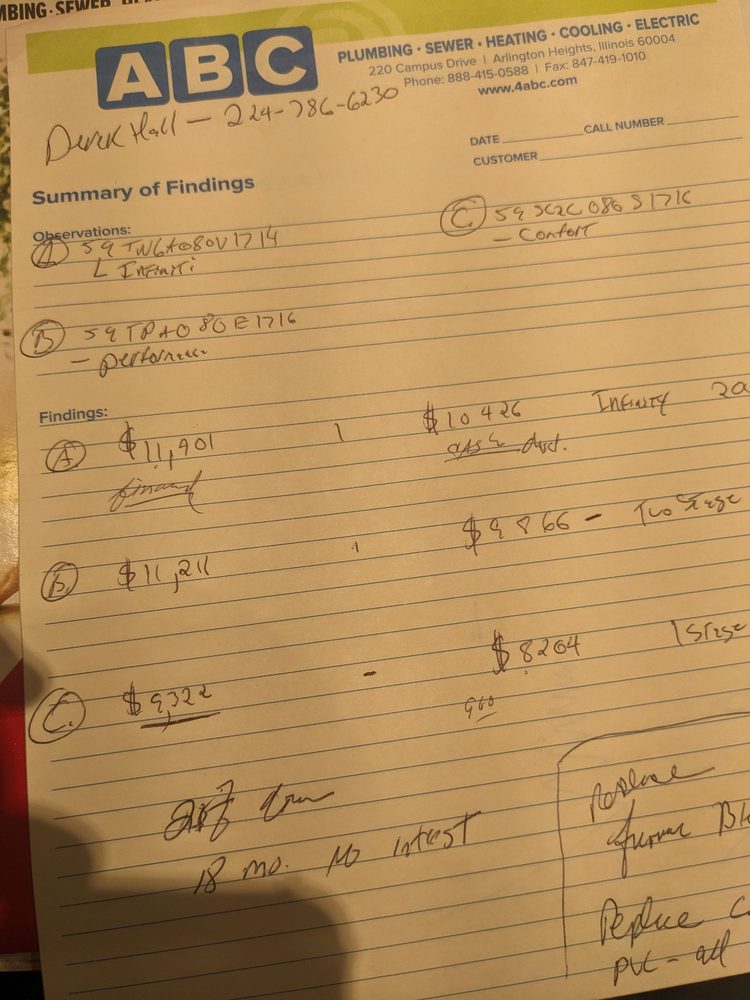 ABC
PLUMBING · SEWER · HEATING · COOLING · ELECTRIC
220 Campus Drive | Arlington Heights, Illinois 60004
Phone: 888-415-0588 | Fax: 847-419-1010
www.4abc.com
Derek Hall — 224-786-6230
DATE CALL NUMBER
CUSTOMER
Summary of Findings
Observations:
A 59TN6A080V1714
Infiniti
C. 59SC2C080S1716
- Comfort
B 59TPA080E1716
- performance
Findings:
A $11,901 $10426 Infinity
cash
B. $11,211 $9866 - Two Stage
C. $9,322 - $8204 1 Stage
down
18 mo. No intrest
Replace
Replace
PVC - all